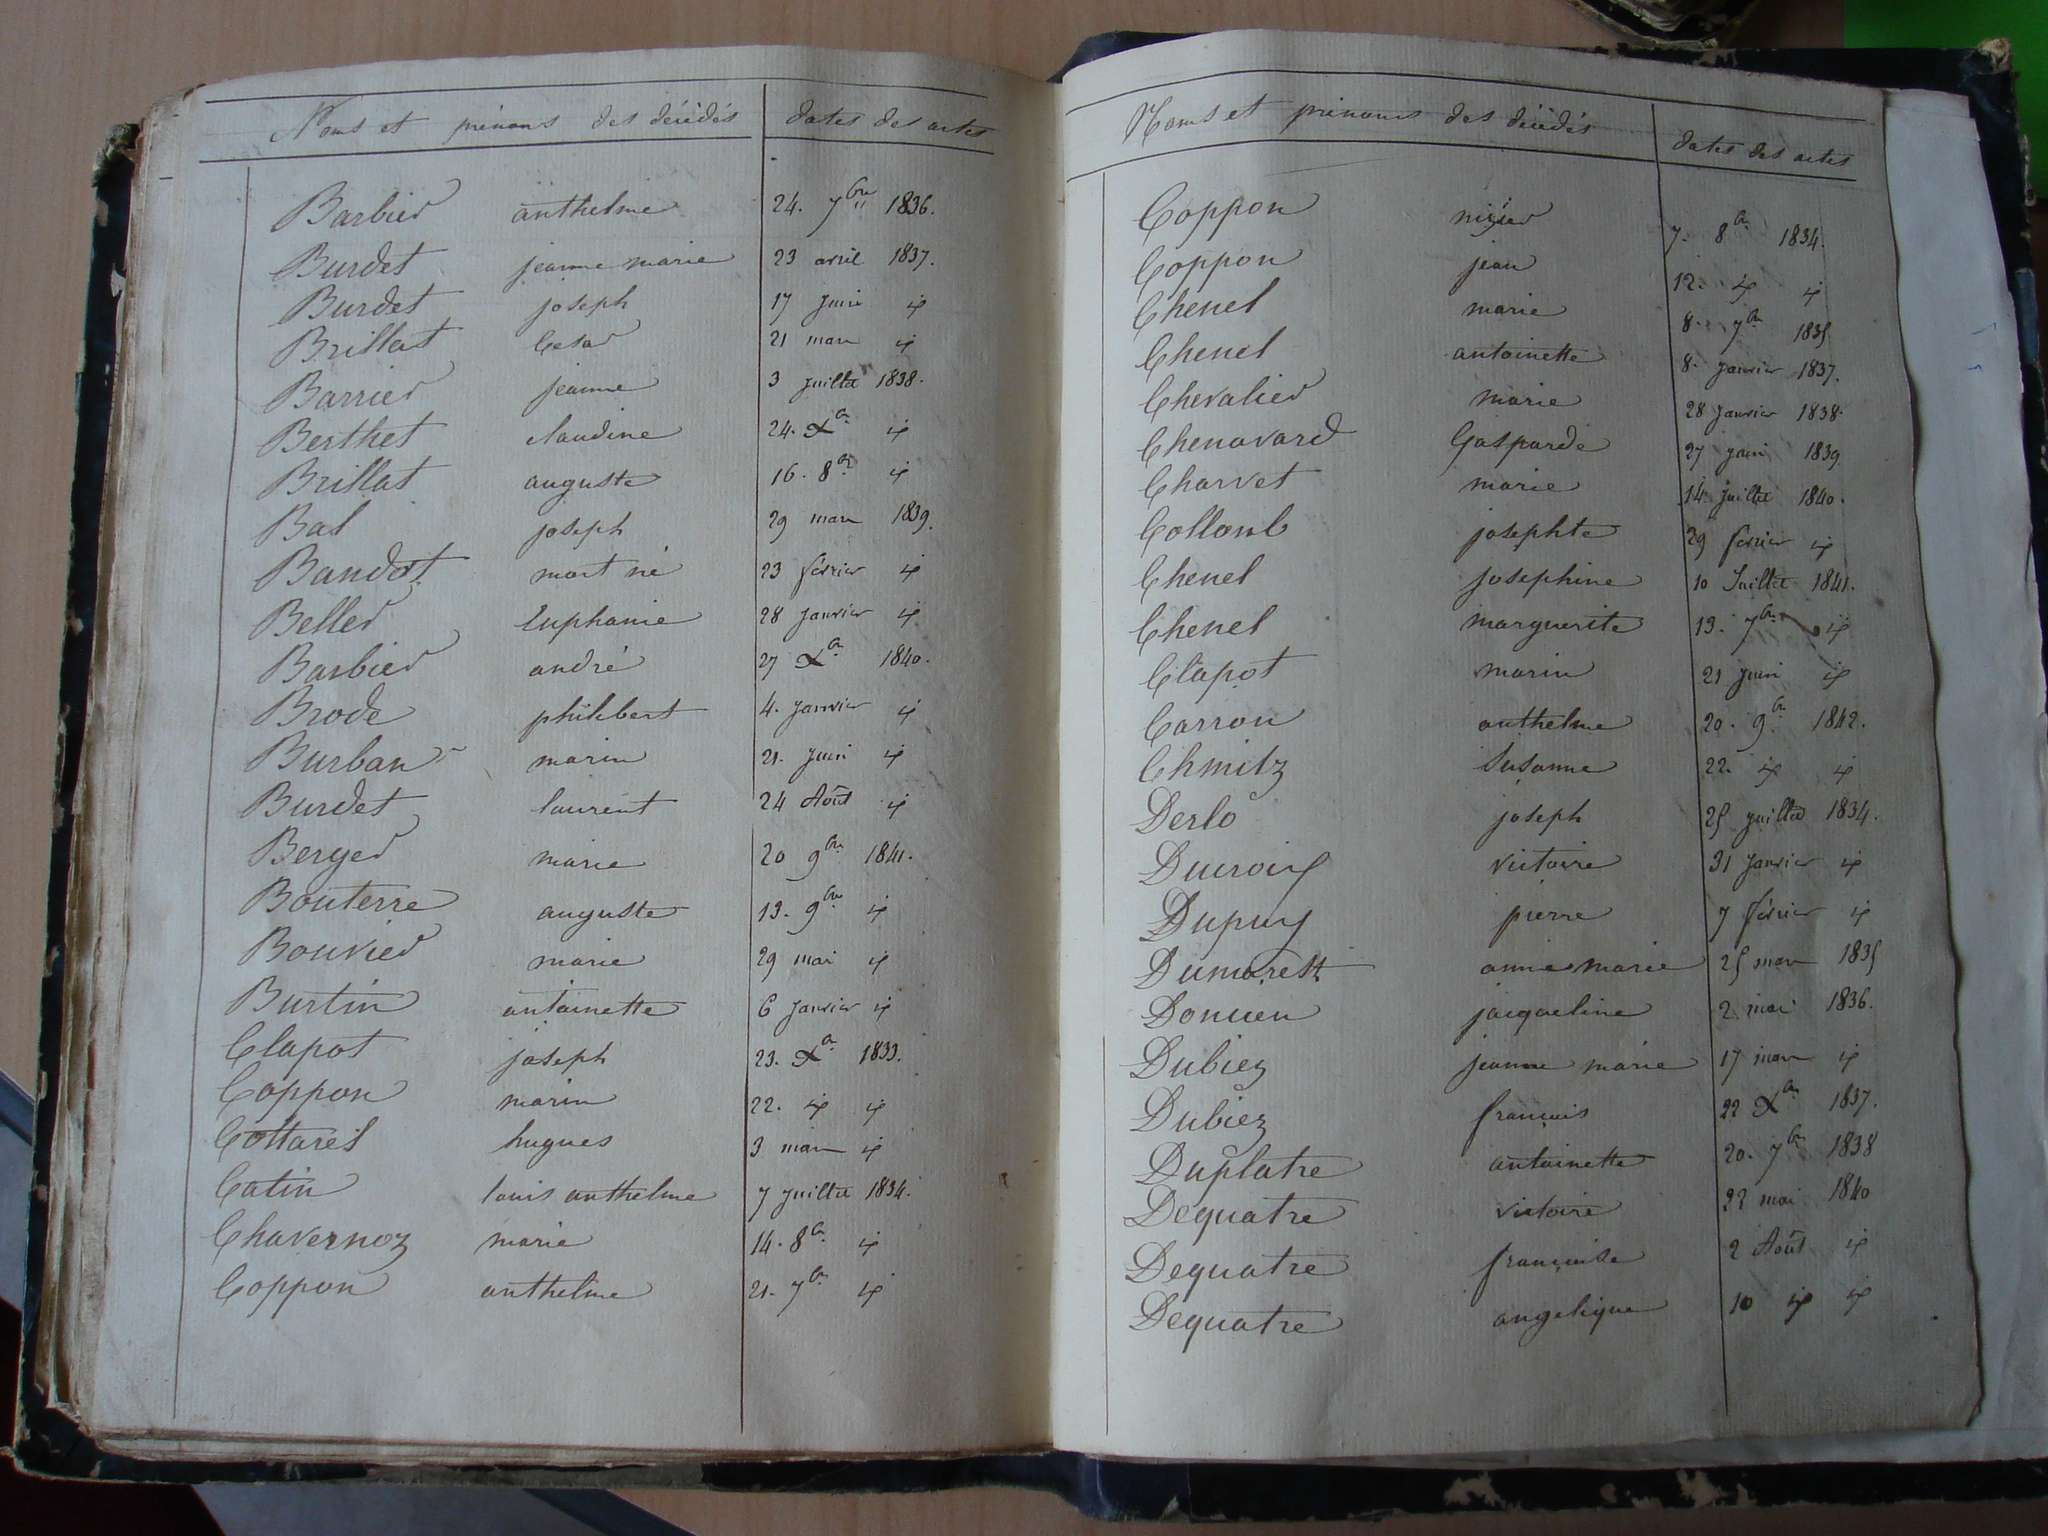 Noms et prénoms des décédés dates des actes
Barbier anthelme 24. 7bre 1836.
Burdet jeanne marie 23 avril 1837.
Burdet joseph 17 juin id
Brillat Cesar 21 mars id
Barrier jeanne 3 juillet 1838.
Berthet claudine 24. Xbr id
Brillat auguste 16. 8br id
Bal joseph 29 mars 1839.
Bandot mort né 23 février id
Beller Euphanie 28 janvier id
Barbier andré 27 Xbr 1840.
Brode philibert 4. janvier id
Burban marin 21. juin id
Burdet laurent 24 Août id
Berger marie 20 9bre 1841.
Bouterre auguste 13. 9bre id
Bouvier marie 29 mai id
Burtin antoinette 6 janvier id
Clapot joseph 23. Xbr 1833.
Coppon marin 22. id id
Cottarel hugues 3 mars id
Catin louis anthelme 7 juillet 1834.
Chavernoz marie 14. 8br id
Coppon anthelme 21. 7br id
Noms et prénoms des décédés dates des actes
Coppon nizier 7. 8br 1834.
Coppon jean 12. id id
Chenel marie 8. 7br 1835
Chenel antoinette 8. janvier 1837.
Chevalier marie 28 janvier 1838.
Chenavard Gasparde 27 juin 1839.
Charvet marie 14. juillet 1840.
Collomb josephte 29 février id
Chenel josephine 10 Juillet 1841.
Chenel marguerite 13. 7bre id
Clapot marin 21 juin id
Carron anthelme 20. 9br 1842.
Chmitz Susanne 22. id id
Derlo joseph 25 juillet 1834.
victoire 31 janvier id
Dupuy pierre 7 février id
anne marie 25 mars 1835
jacqueline 2 mai 1836.
Dubiez jeanne marie 17 mars id
Dubiez francois 22 Xbr 1837.
Duplatre antoinette 20. 7br 1838
Dequatre victoire 22 mai 1840
Dequatre francoise 2 Août id
Dequatre angelique 10 id id